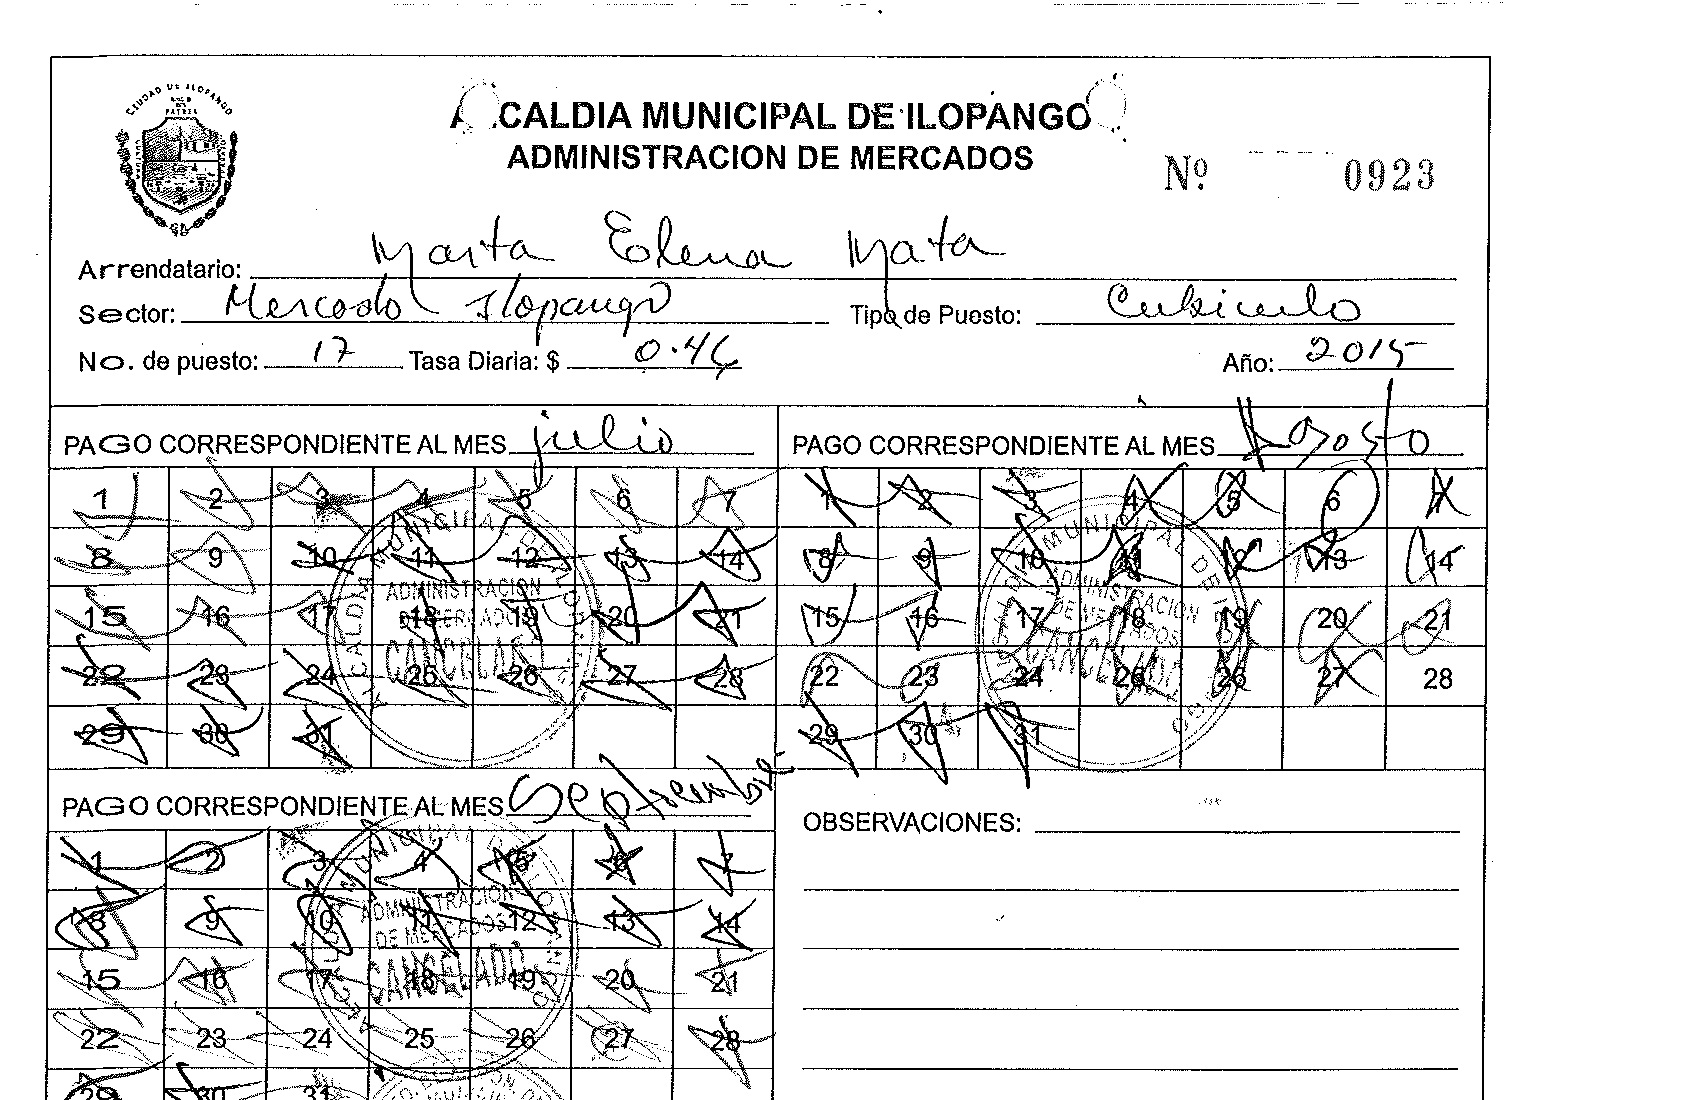 CIUDAD DE ILOPANGO
CALDIA MUNICIPAL DE ILOPANGO
ADMINISTRACION DE MERCADOS
Nº 0923
Arrendatario: Marta Elena Mata
Sector: Mercado Ilopango Tipo de Puesto: Cubiculo
No. de puesto: 17 Tasa Diaria: $ 0.46 Año: 2015
PAGO CORRESPONDIENTE AL MES julio
1 2 3 4 5 6 7
8 9 10 11 12 13 14
15 16 17 18 19 20 21
22 23 24 25 26 27 28
29 30 31
ADMINISTRACION
DE MERCADOS
CANCELADO
PAGO CORRESPONDIENTE AL MES Agosto
1 2 3 4 5 6 7
8 9 10 11 12 13 14
15 16 17 18 19 20 21
22 23 24 25 26 27 28
29 30 31
MUNICIPAL DE
ADMINISTRACION
DE MERCADOS
CANCELADO
PAGO CORRESPONDIENTE AL MES Septiembre
1 2 3 4 5 6 7
8 9 10 11 12 13 14
15 16 17 18 19 20 21
22 23 24 25 26 27 28
29 30 31
ADMINISTRACION
DE MERCADOS
CANCELADO
OBSERVACIONES: